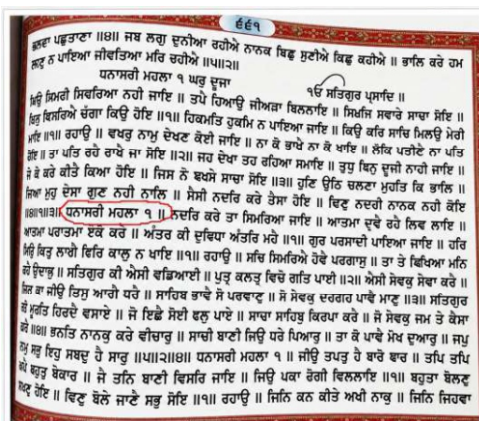 ੬੬੧
ਭਲਕਾ ਪਛੁਤਾਣਾ ॥੪॥ ਜਬ ਲਗੁ ਦੁਨੀਆ ਰਹੀਐ ਨਾਨਕ ਕਿਛੁ ਸੁਣੀਐ ਕਿਛੁ ਕਹੀਐ ॥ ਭਾਲਿ ਰਹੇ ਹਮ
ਰਹਣੁ ਨ ਪਾਇਆ ਜੀਵਤਿਆ ਮਰਿ ਰਹੀਐ ॥੫॥੨॥
ਧਨਾਸਰੀ ਮਹਲਾ ੧ ਘਰੁ ਦੂਜਾ
ੴ ਸਤਿਗੁਰ ਪ੍ਰਸਾਦਿ ॥
ਕਿਉ ਸਿਮਰੀ ਸਿਵਰਿਆ ਨਹੀ ਜਾਇ ॥ ਤਪੈ ਹਿਆਉ ਜੀਅੜਾ ਬਿਲਲਾਇ ॥ ਸਿਰਜਿ ਸਵਾਰੇ ਸਾਚਾ ਸੋਇ ॥
ਤਿਸੁ ਵਿਸਰਿਐ ਚੰਗਾ ਕਿਉ ਹੋਇ ॥੧॥ ਹਿਕਮਤਿ ਹੁਕਮਿ ਨ ਪਾਇਆ ਜਾਇ ॥ ਕਿਉ ਕਰਿ ਸਾਚਿ ਮਿਲਉ ਮੇਰੀ
ਮਾਇ ॥੧॥ ਰਹਾਉ ॥ ਵਖਰੁ ਨਾਮੁ ਦੇਖਣ ਕੋਈ ਜਾਇ ॥ ਨਾ ਕੋ ਚਾਖੈ ਨਾ ਕੋ ਖਾਇ ॥ ਲੋਕਿ ਪਤੀਣੈ ਨਾ ਪਤਿ
ਹੋਇ ॥ ਤਾ ਪਤਿ ਰਹੈ ਰਾਖੈ ਜਾ ਸੋਇ ॥੨॥ ਜਹ ਦੇਖਾ ਤਹ ਰਹਿਆ ਸਮਾਇ ॥ ਤੁਧੁ ਬਿਨੁ ਦੂਜੀ ਨਾਹੀ ਜਾਇ ॥
ਜੇ ਕੋ ਕਰੇ ਕੀਤੈ ਕਿਆ ਹੋਇ ॥ ਜਿਸ ਨੋ ਬਖਸੇ ਸਾਚਾ ਸੋਇ ॥੩॥ ਹੁਣਿ ਉਠਿ ਚਲਣਾ ਮੁਹਤਿ ਕਿ ਤਾਲਿ ॥
ਕਿਆ ਮੁਹੁ ਦੇਸਾ ਗੁਣ ਨਹੀ ਨਾਲਿ ॥ ਜੈਸੀ ਨਦਰਿ ਕਰੇ ਤੈਸਾ ਹੋਇ ॥ ਵਿਣੁ ਨਦਰੀ ਨਾਨਕ ਨਹੀ ਕੋਇ
॥੪॥੧॥੩॥ ਧਨਾਸਰੀ ਮਹਲਾ ੧ ॥ ਨਦਰਿ ਕਰੇ ਤਾ ਸਿਮਰਿਆ ਜਾਇ ॥ ਆਤਮਾ ਦ੍ਰਵੈ ਰਹੈ ਲਿਵ ਲਾਇ ॥
ਆਤਮਾ ਪਰਾਤਮਾ ਏਕੋ ਕਰੈ ॥ ਅੰਤਰ ਕੀ ਦੁਬਿਧਾ ਅੰਤਰਿ ਮਰੈ ॥੧॥ ਗੁਰ ਪਰਸਾਦੀ ਪਾਇਆ ਜਾਇ ॥ ਹਰਿ
ਸਿਉ ਚਿਤੁ ਲਾਗੈ ਫਿਰਿ ਕਾਲੁ ਨ ਖਾਇ ॥੧॥ ਰਹਾਉ ॥ ਸਚਿ ਸਿਮਰਿਐ ਹੋਵੈ ਪਰਗਾਸੁ ॥ ਤਾ ਤੇ ਬਿਖਿਆ ਮਹਿ
ਰਹੈ ਉਦਾਸੁ ॥ ਸਤਿਗੁਰ ਕੀ ਐਸੀ ਵਡਿਆਈ ॥ ਪੁਤ੍ਰ ਕਲਤ੍ਰ ਵਿਚੇ ਗਤਿ ਪਾਈ ॥੨॥ ਐਸੀ ਸੇਵਕੁ ਸੇਵਾ ਕਰੈ ॥
ਜਿਸ ਕਾ ਜੀਉ ਤਿਸੁ ਆਗੈ ਧਰੈ ॥ ਸਾਹਿਬ ਭਾਵੈ ਸੋ ਪਰਵਾਣੁ ॥ ਸੋ ਸੇਵਕੁ ਦਰਗਹ ਪਾਵੈ ਮਾਣੁ ॥੩॥ ਸਤਿਗੁਰ
ਕੀ ਮੂਰਤਿ ਹਿਰਦੈ ਵਸਾਏ ॥ ਜੋ ਇਛੈ ਸੋਈ ਫਲੁ ਪਾਏ ॥ ਸਾਚਾ ਸਾਹਿਬੁ ਕਿਰਪਾ ਕਰੈ ॥ ਸੋ ਸੇਵਕੁ ਜਮ ਤੇ ਕੈਸਾ
ਡਰੈ ॥੪॥ ਭਨਤਿ ਨਾਨਕੁ ਕਰੇ ਵੀਚਾਰੁ ॥ ਸਾਚੀ ਬਾਣੀ ਸਿਉ ਧਰੇ ਪਿਆਰੁ ॥ ਤਾ ਕੋ ਪਾਵੈ ਮੋਖ ਦੁਆਰੁ ॥ ਜਪੁ
ਤਪੁ ਸਭੁ ਇਹੁ ਸਬਦੁ ਹੈ ਸਾਰੁ ॥੫॥੨॥੪॥ ਧਨਾਸਰੀ ਮਹਲਾ ੧ ॥ ਜੀਉ ਤਪਤੁ ਹੈ ਬਾਰੋ ਬਾਰ ॥ ਤਪਿ ਤਪਿ
ਖਪੈ ਬਹੁਤੁ ਬੇਕਾਰ ॥ ਜੈ ਤਨਿ ਬਾਣੀ ਵਿਸਰਿ ਜਾਇ ॥ ਜਿਉ ਪਕਾ ਰੋਗੀ ਵਿਲਲਾਇ ॥੧॥ ਬਹੁਤਾ ਬੋਲਣੁ
ਝਖਣੁ ਹੋਇ ॥ ਵਿਣੁ ਬੋਲੇ ਜਾਣੈ ਸਭੁ ਸੋਇ ॥੧॥ ਰਹਾਉ ॥ ਜਿਨਿ ਕਨ ਕੀਤੇ ਅਖੀ ਨਾਕੁ ॥ ਜਿਨਿ ਜਿਹਵਾ